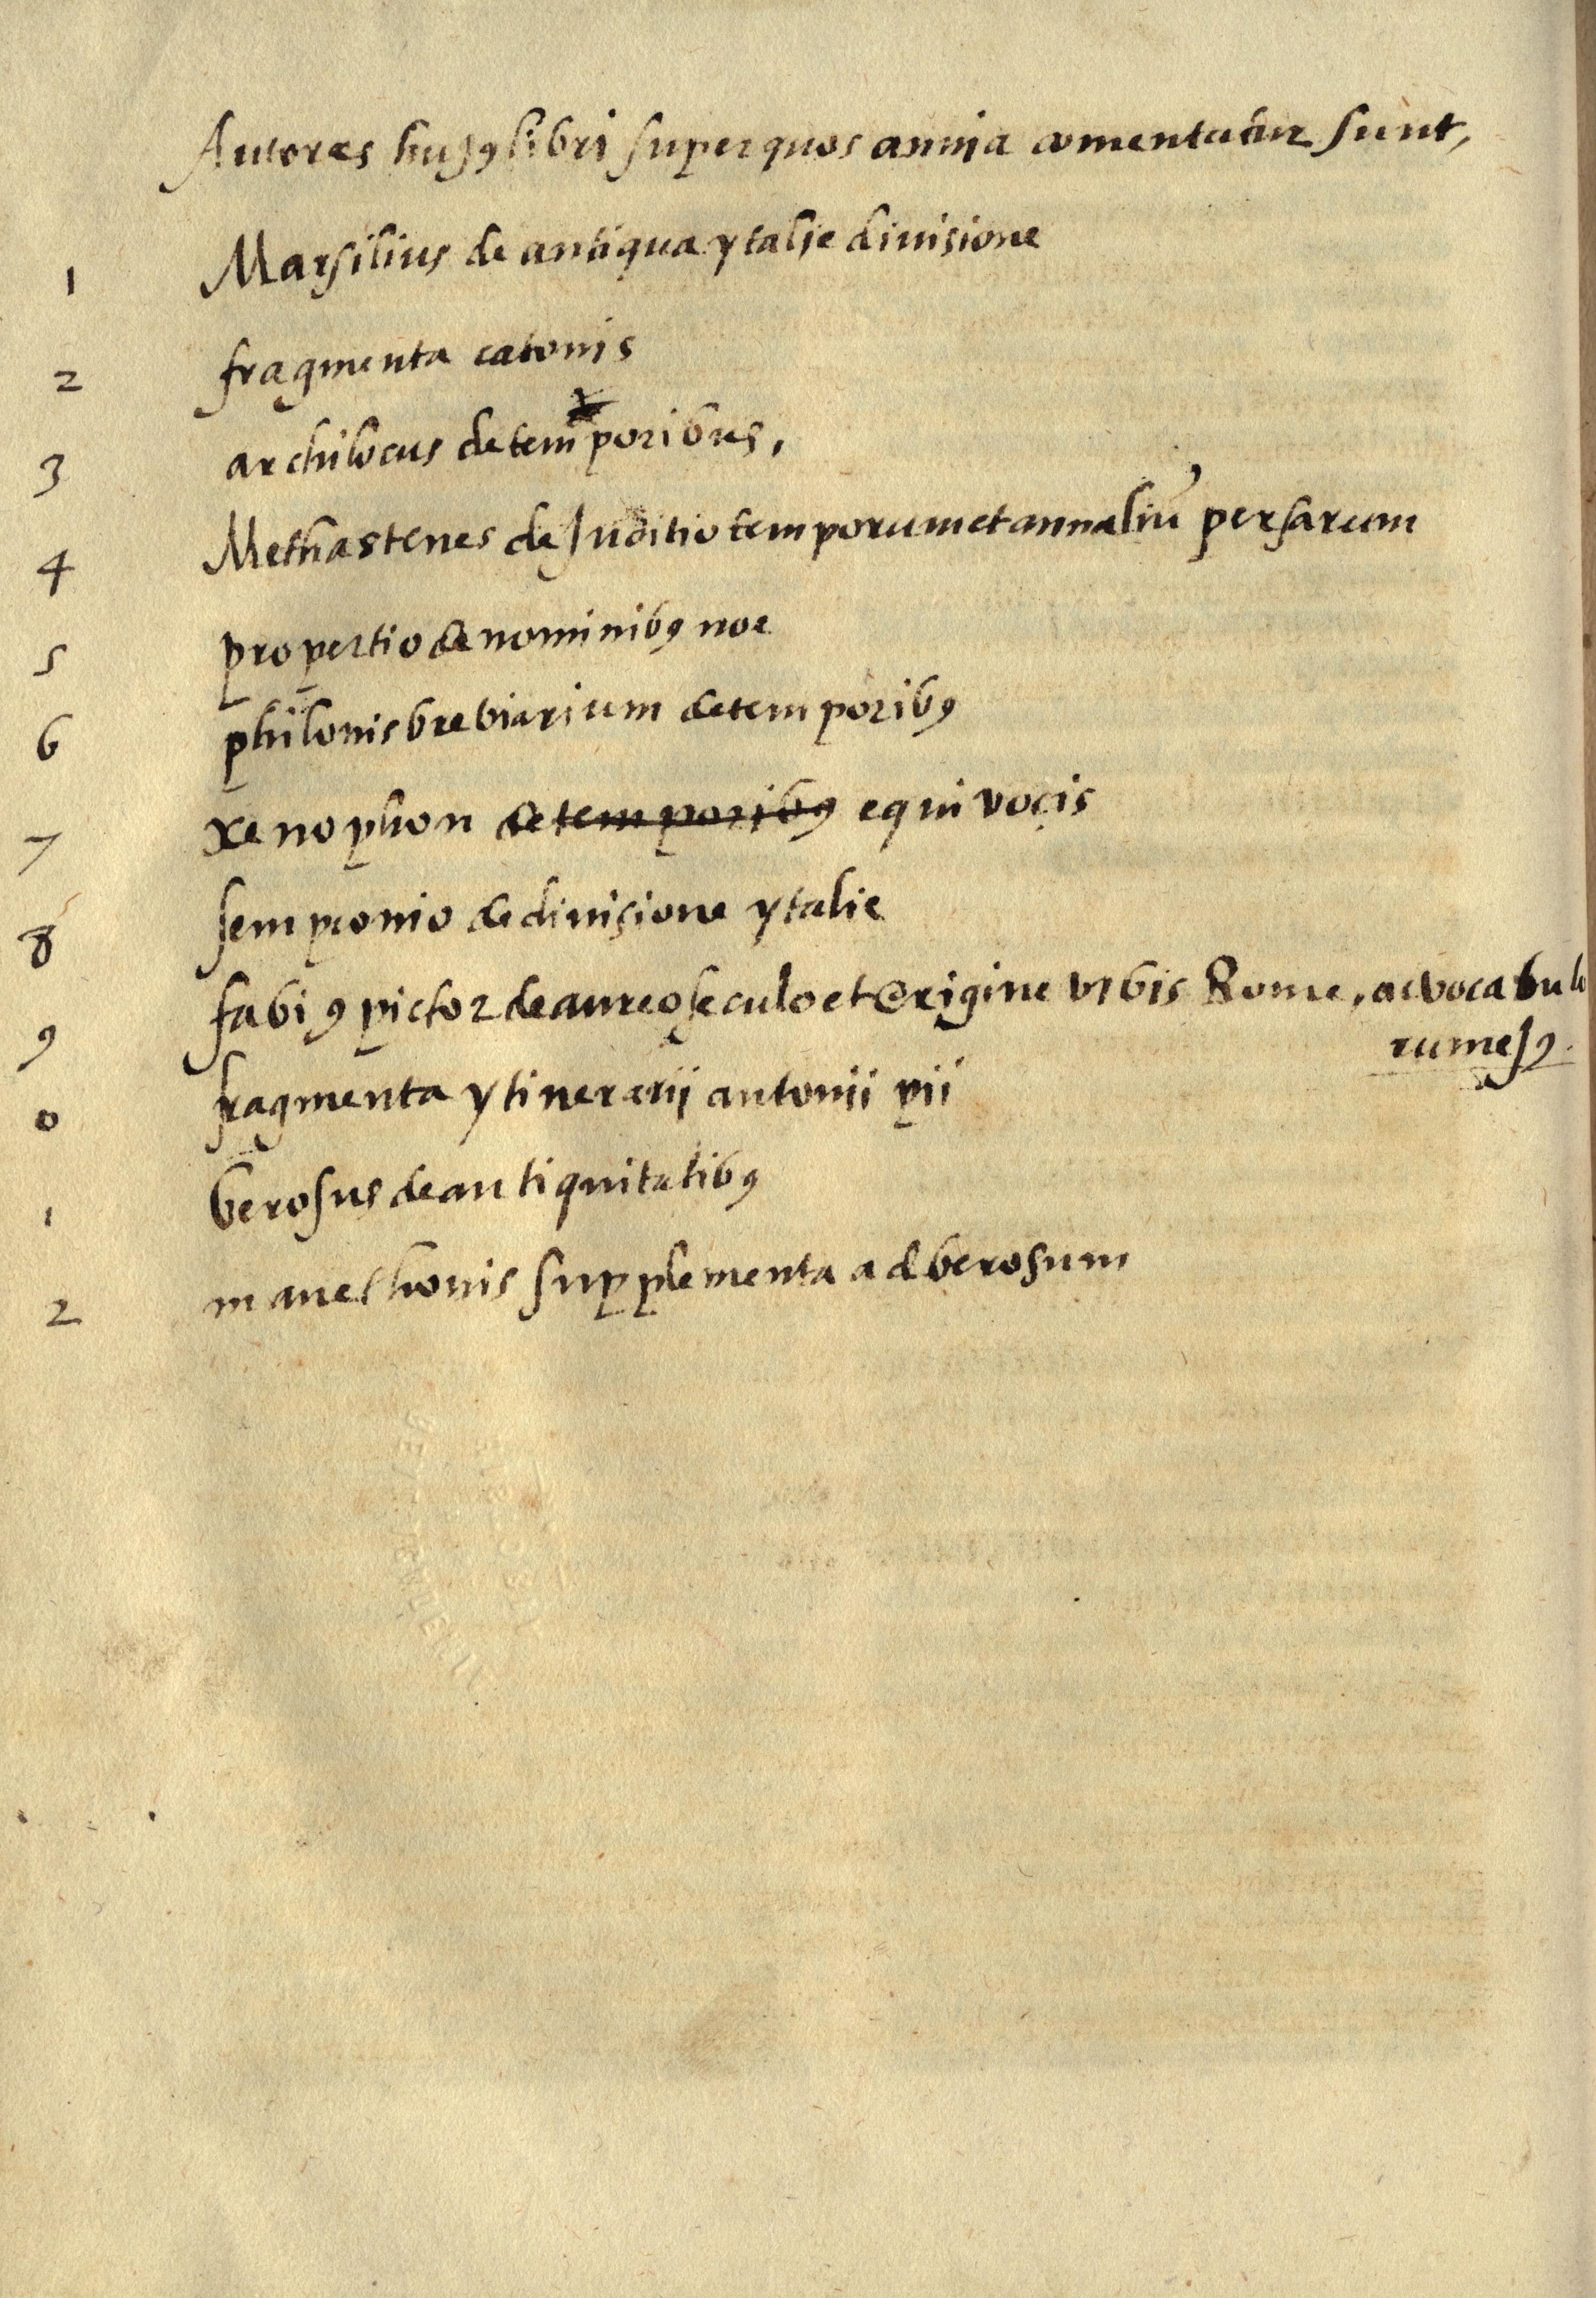 Autores hujꝰ libri super quos annia comentatur sunt,
1 Marsilius de antiqua ytalie diuisione
2 fragmenta catonis
3 archilocus de temporibus,
4 Methastenes de Juditio temporum et annaliū persarum
5 propertio de nominibꝰ noe
6 philonis brebiarium de temporibꝰ
7 xenophon de temporibꝰ equivocis
8 sempronio de diuisione ytalie
9 fabiꝰ pictor de aureo seculo et origine vrbis Rome, ac vocabulo
rum ejꝰ.
0 fragmenta ytinerarii antonii pii
1 berosus de antiquitatibꝰ
2 manethonis supplementa ad berosum